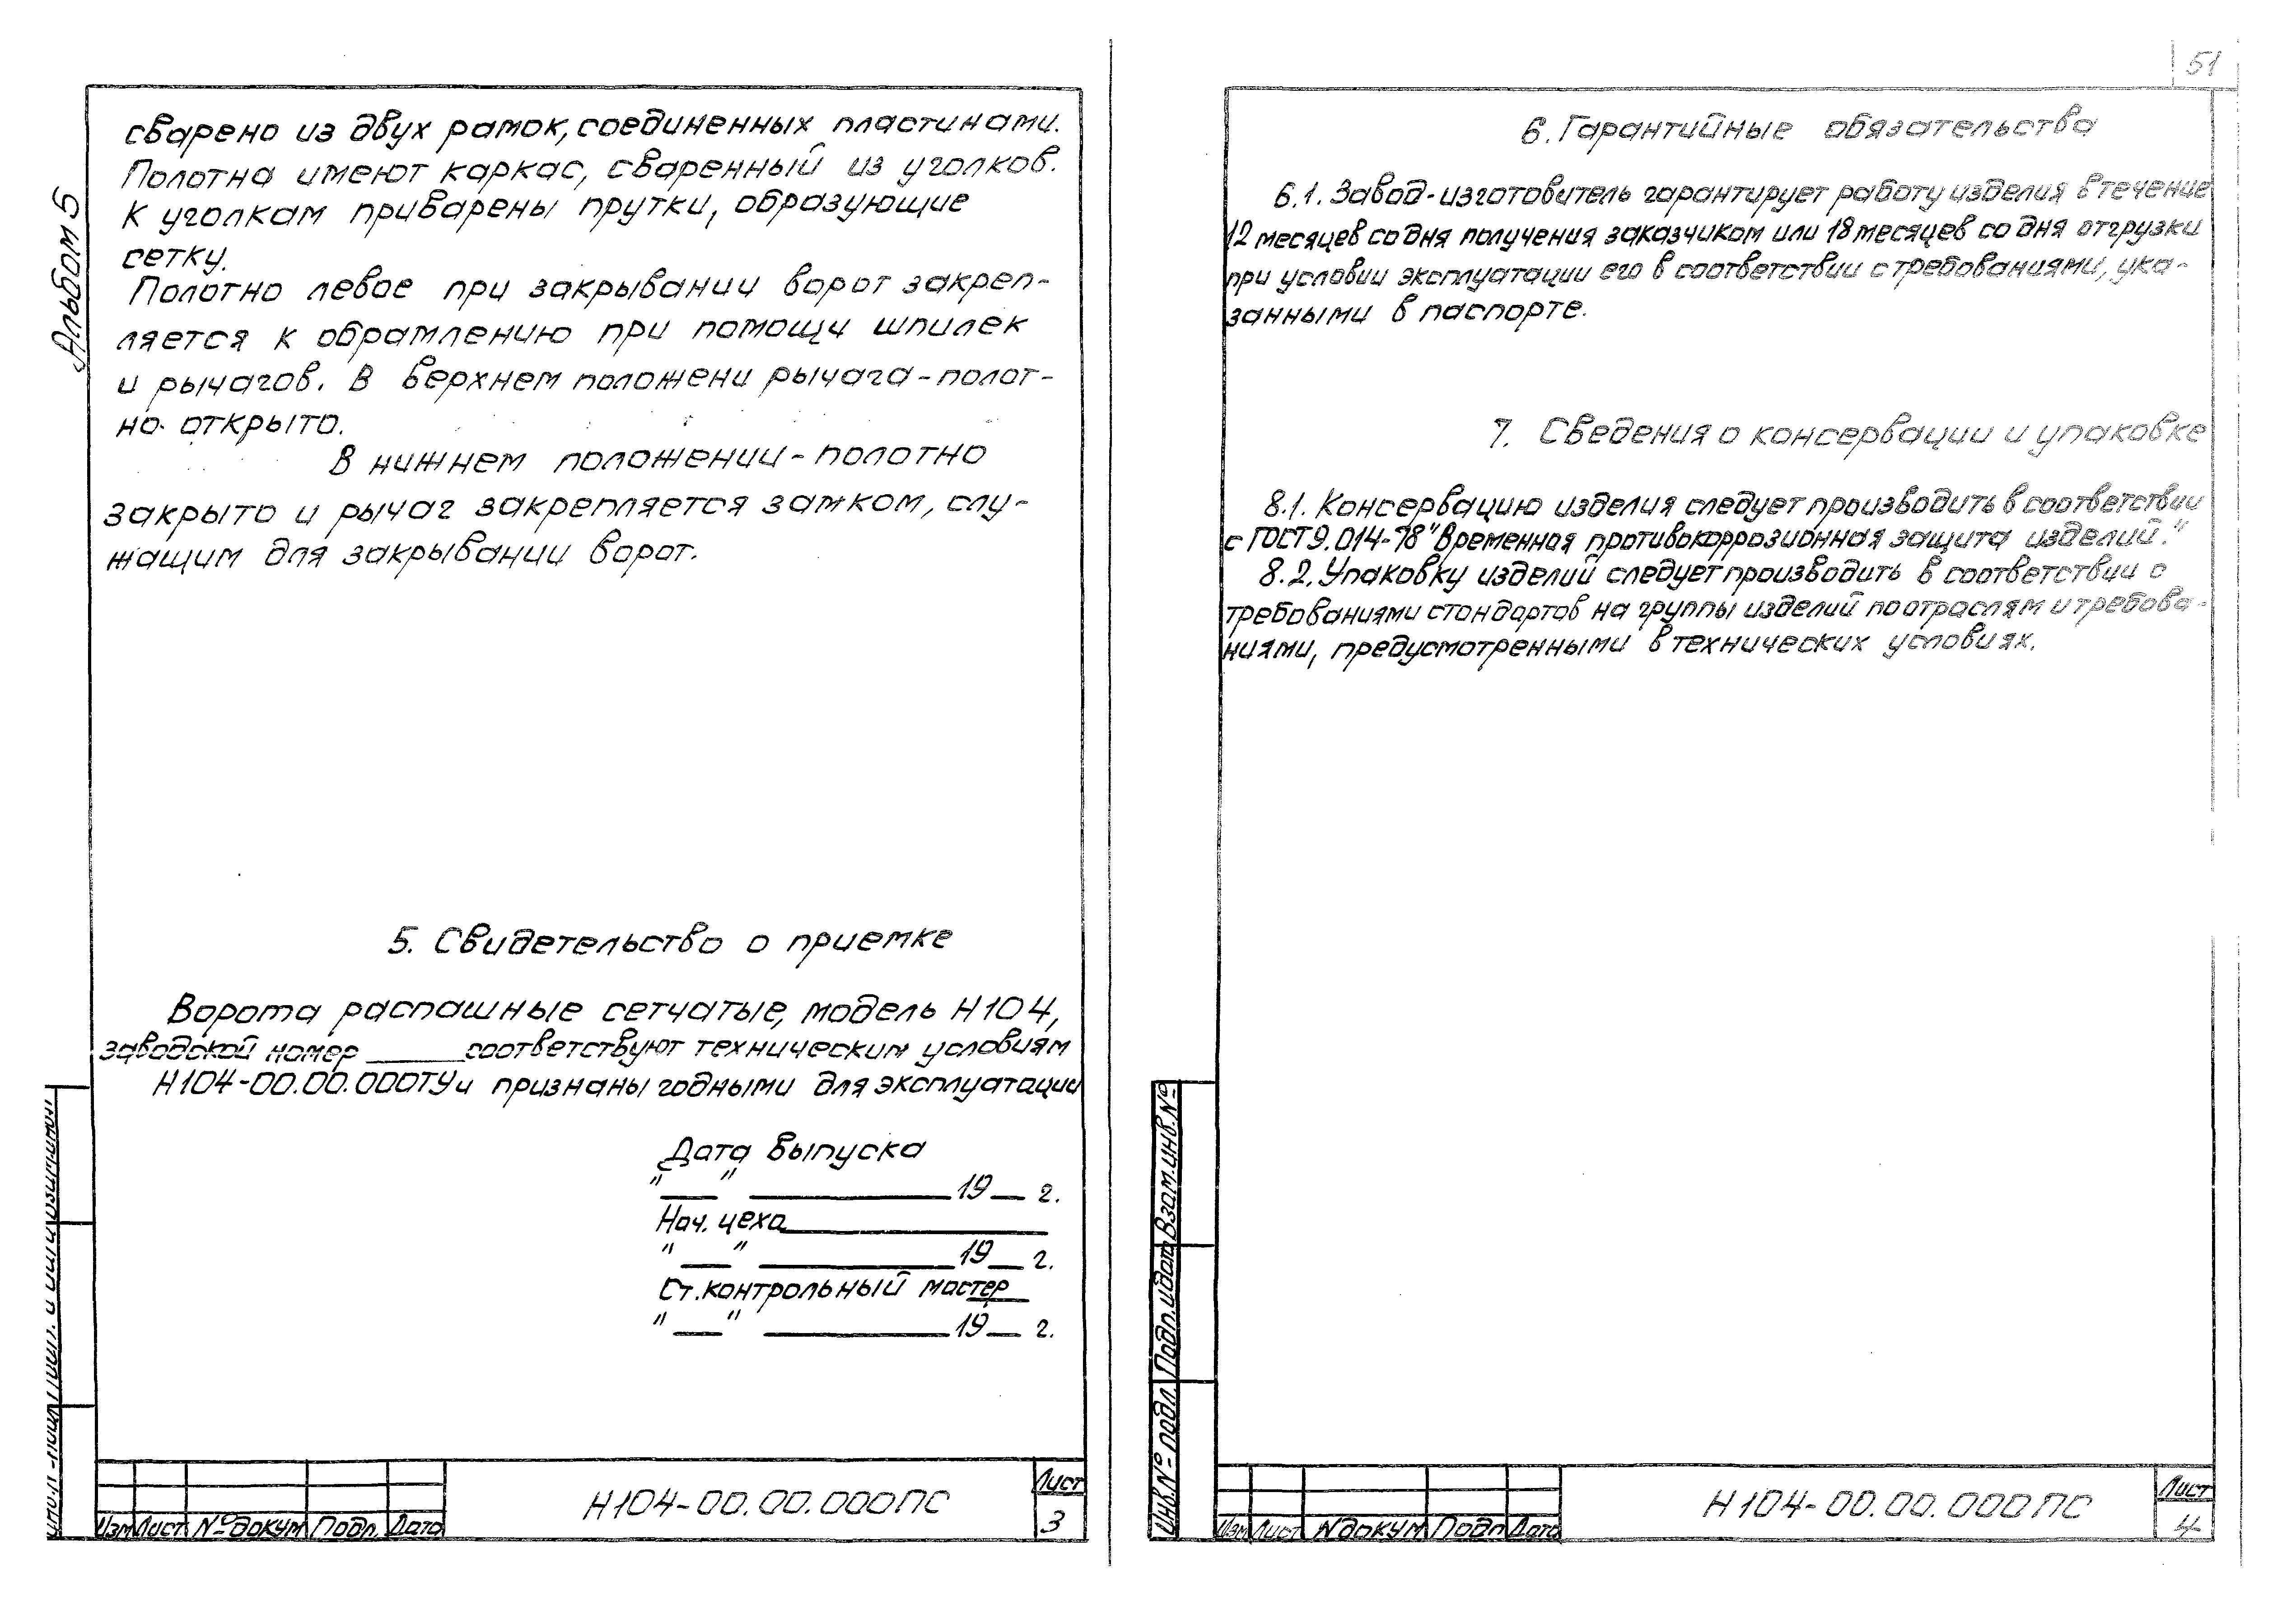 Альбом 5
сварено из двух рамок, соединенных пластинами.
Полотна имеют каркас, сваренный из уголков.
К уголкам приварены прутки, образующие
сетку.
Полотно левое при закрывании ворот закреп-
ляется к обрамлению при помощи шпилек
и рычагов. В верхнем положени рычага-полот-
но открыто.
В нижнем положении-полотно
закрыто и рычаг закрепляется замком, слу-
жащим для закрывании ворот.
5. Свидетельство о приемке
Ворота распашные сетчатые, модель Н104,
заводской номер ______соответствуют техническим условиям
Н104-00.00.000ТУ и признаны годными для эксплуатации
Дата выпуска
"___" __________19__ г.
Нач. цеха__________
"___" __________19__ г.
Ст. контрольный мастер
"___" __________19__ г.
Изм Лист №докум Подп. Дата
Н104-00.00.000ПС
Лист
3
51
6. Гарантийные обязательства
6.1. Завод-изготовитель гарантирует работу изделия в течение
12 месяцев со дня получения заказчиком или 18 месяцев со дня отгрузки
при условии эксплуатации его в соответствии с требованиями, ука-
занными в паспорте.
7. Сведения о консервации и упаковке
8.1. Консервацию изделия следует производить в соответствии
с ГОСТ 9.014-78 "Временная противокоррозионная защита изделий."
8.2. Упаковку изделий следует производить в соответствии с
требованиями стандартов на группы изделий по отраслям и требова-
ниями, предусмотренными в технических условиях.
Инв.№ подл. Подп. и дата Взам.инв.№
Изм Лист Nдокум Подп Дата
Н104-00.00.000ПС
Лист
4